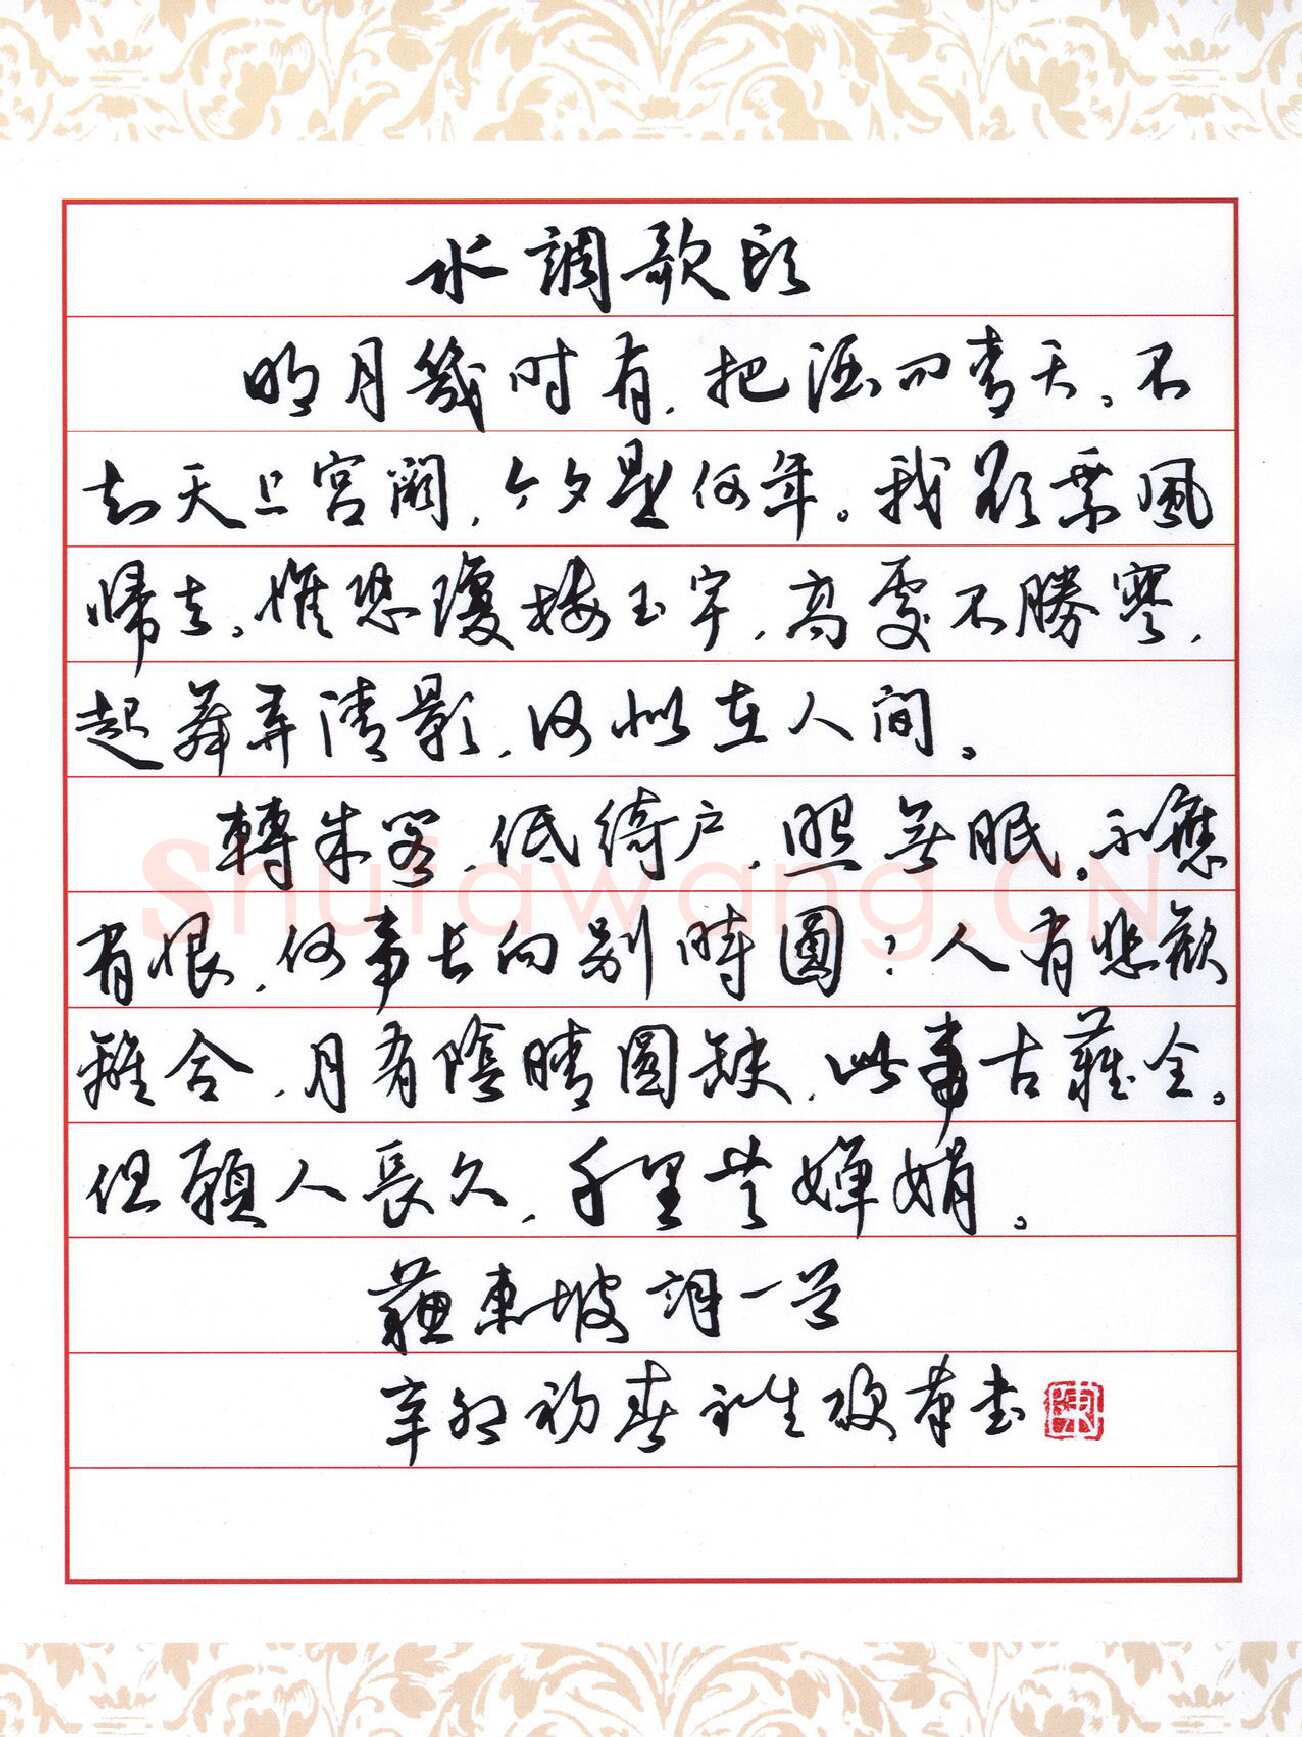 水調歌頭
明月幾時有，把酒問青天。不
知天上宮闕，今夕是何年。我欲乘風
歸去，惟恐瓊樓玉宇，高處不勝寒，
起舞弄清影，何似在人間。
轉朱閣，低綺户，照無眠。不應
有恨，何事長向別時圓？人有悲歡
離合，月有陰晴圓缺，此事古難全。
但願人長久，千里共嬋娟。
蘇東坡詞一首
辛卯初春 書
陳
Shufawang.CN